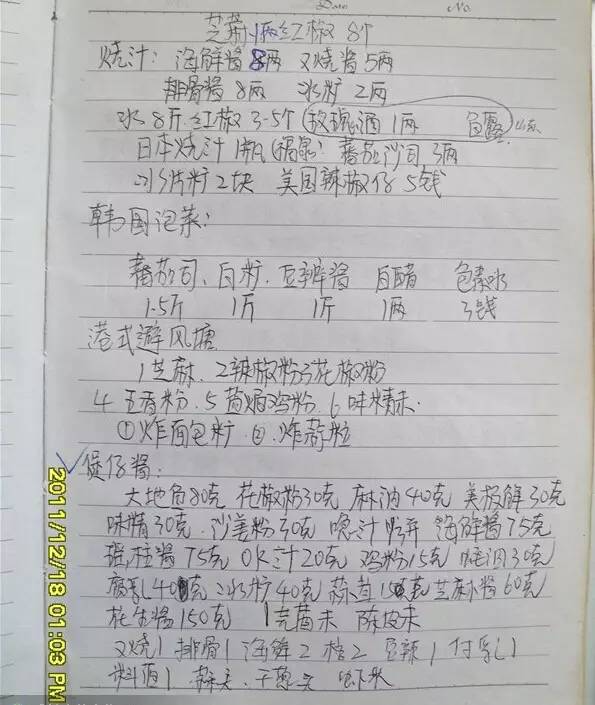 Date No.
芝麻1两红椒 8个
烧汁: 海鲜酱8两 叉烧酱5两
排骨酱8两 冰贮 2两
水8斤.红椒3-5个(玫瑰酒1两
日本烧汁1瓶 蕃茄沙司3两
冰片贮2块 美国辣椒仔5钱
韩国泡菜:
蕃茄司、白贮.豆辨酱 白醋 色素水
1.5斤 1斤 1斤 1两 3钱
港式避风塘
1芝麻. 2辣椒粉3花椒粉
4 五香粉.5 鸡粉.6味精.
①炸面包贮 ②.炸蒜粒
煲仔酱:
大地鱼80克 花椒粉30克 麻油40克 美极鲜30克
味精30克 沙姜粉30克 喼汁 海鲜酱75克
柱酱75克 OK汁20克 鸡粉15克 30克
腐乳40克 冰贮40克 蒜茸 芝麻酱60克
花生酱150克 1芫茜末 陈皮末
叉烧1 排骨1 海鲜2 2 豆辣1 付乳1
料酒1 干葱 虾米
2011/12/18 01:03 PM